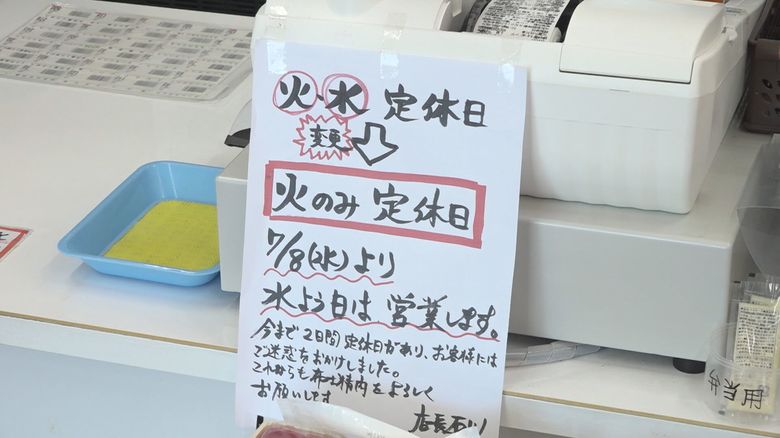 火・水 定休日
変更
火のみ 定休日
7/8(水)より
水よう日は 営業します。
今まで2日間定休日があり、お客様には
ご迷惑をおかけしました。
これからも
精肉をよろしく
お願いします
店長 石川
弁当用